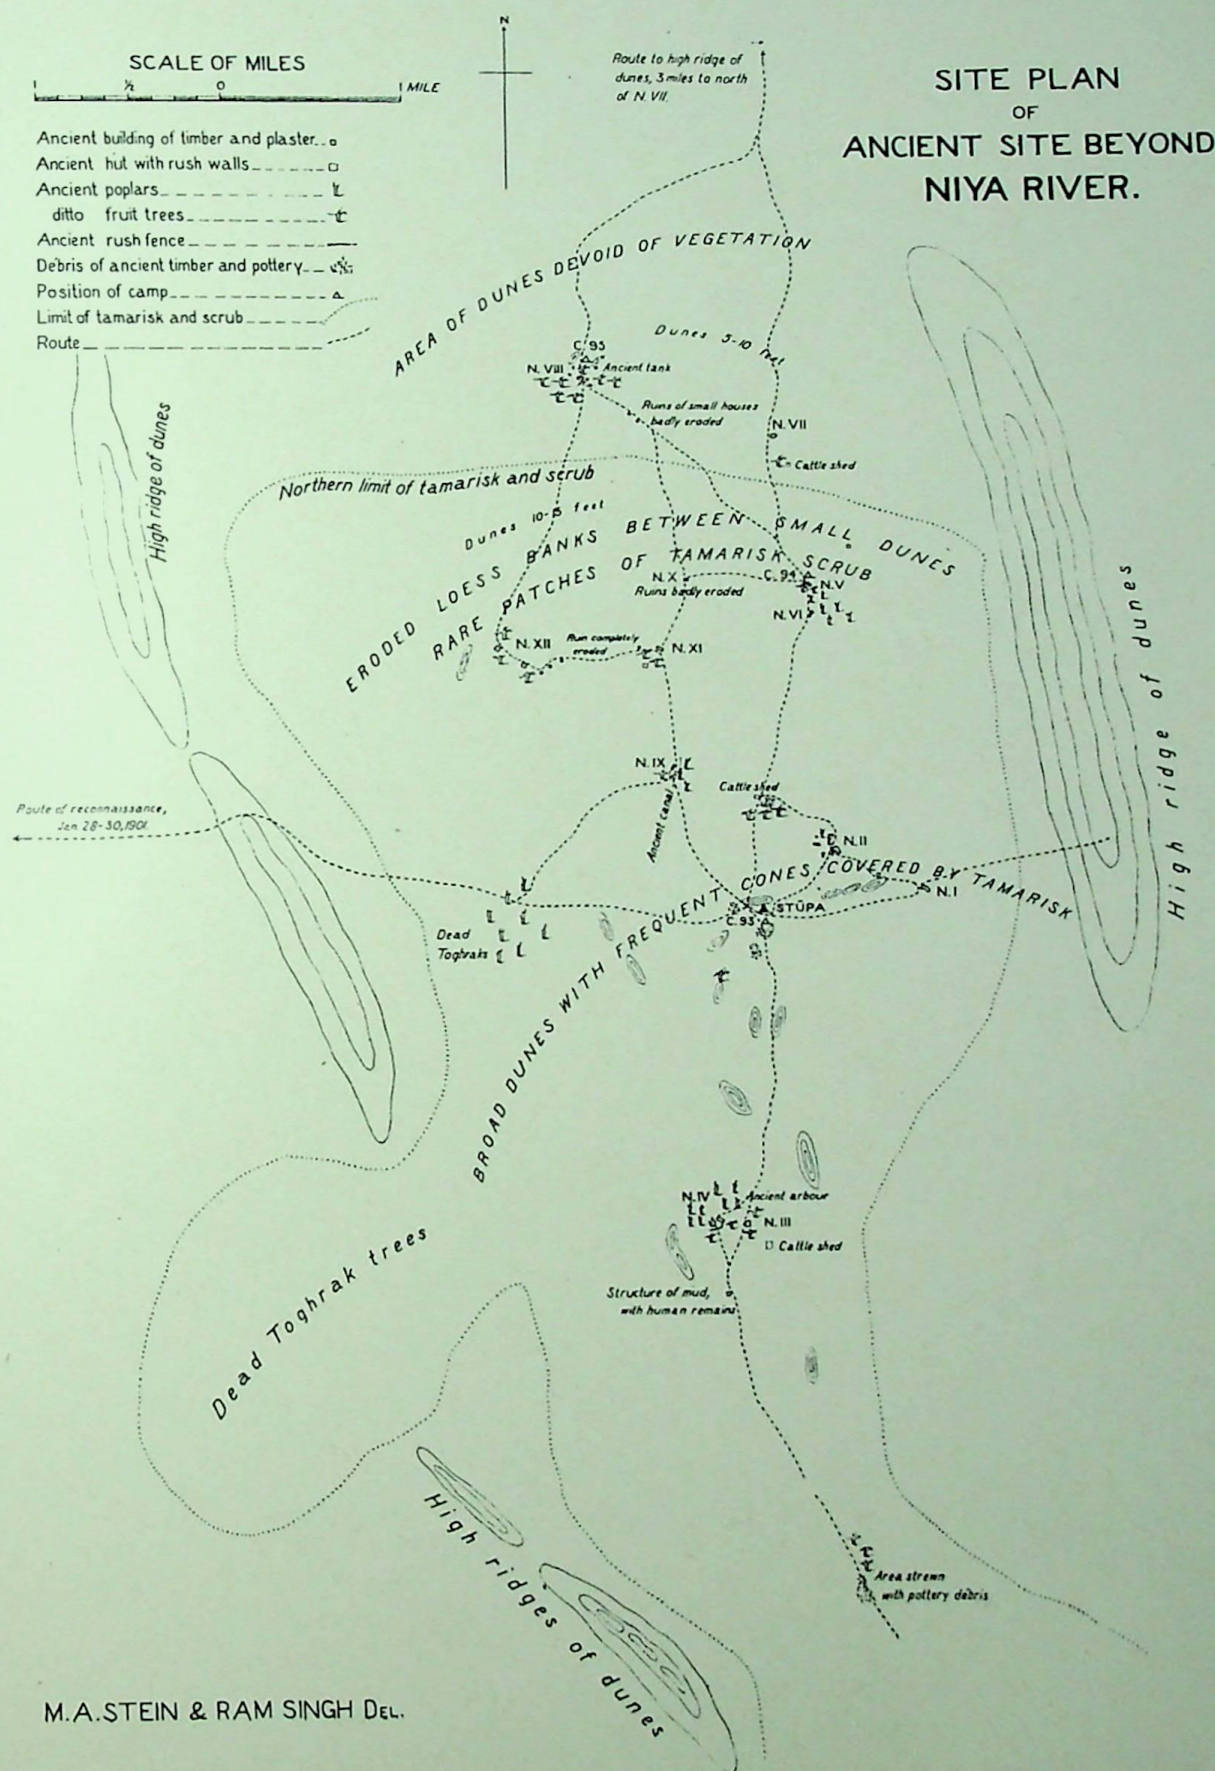 SCALE OF MILES
1 ½ 0 1 MILE
Ancient building of timber and plaster
Ancient hut with rush walls
Ancient poplars
ditto fruit trees
Ancient rush fence
Debris of ancient timber and pottery
Position of camp
Limit of tamarisk and scrub
Route
N
Route to high ridge of
dunes, 3 miles to north
of N. VII.
SITE PLAN
OF
ANCIENT SITE BEYOND
NIYA RIVER.
AREA OF DUNES DEVOID OF VEGETATION
Dunes 5-10 feet
C. 95
N. VIII
Ancient tank
Ruins of small houses
badly eroded
N. VII
Cattle shed
High ridge of dunes
Northern limit of tamarisk and scrub
Dunes 10-15 feet
ERODED LOESS BANKS BETWEEN SMALL DUNES
RARE PATCHES OF TAMARISK SCRUB
N. X
Ruins badly eroded
C. 94
N. V
N. VI
N. XII
Ruin completely
eroded
N. XI
High ridge of dunes
N. IX
Ancient canal
Cattle shed
N. II
Route of reconnaissance,
Jan. 28-30, 1901.
BROAD DUNES WITH FREQUENT CONES COVERED BY TAMARISK
N. I
STŪPA
C. 93
Dead
Toghraks
N. IV
Ancient arbour
N. III
Cattle shed
Structure of mud,
with human remains
Dead Toghrak trees
High ridges of dunes
Area strewn
with pottery debris
M. A. STEIN & RAM SINGH DEL.